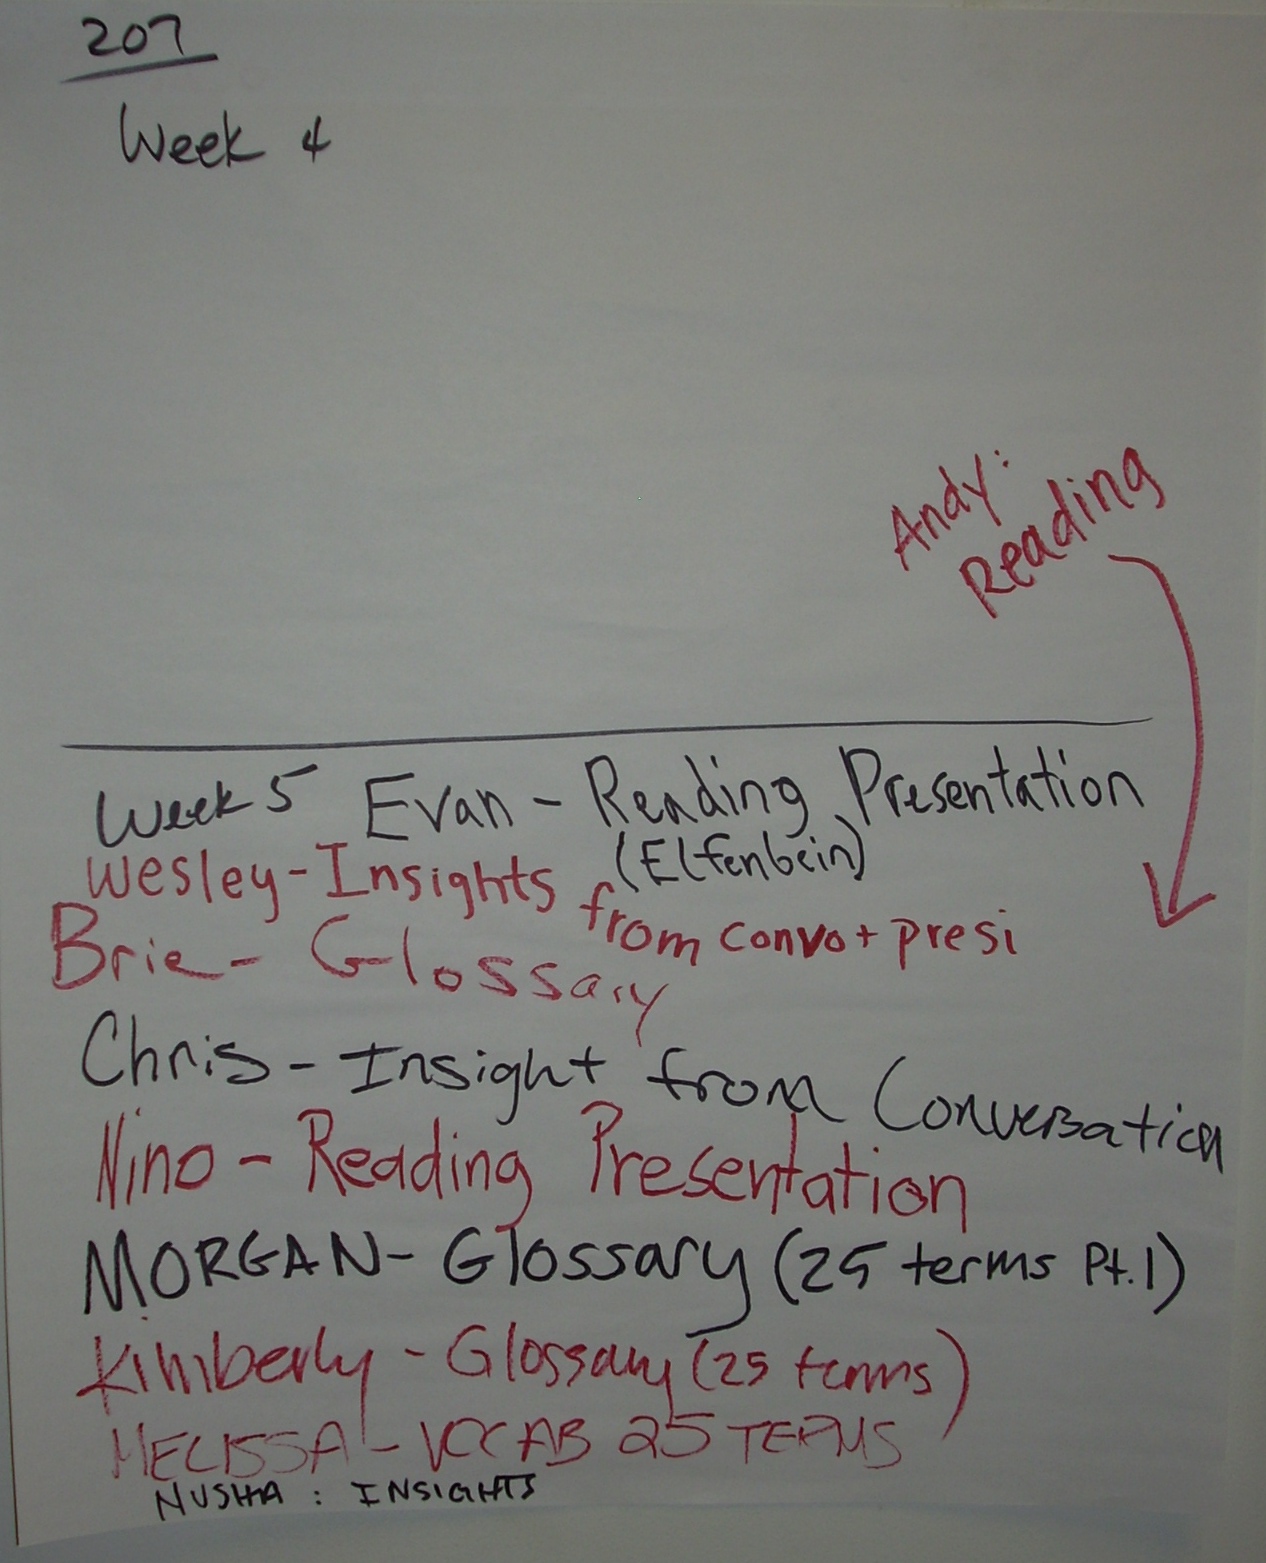 207
Week 4
Andy:
Reading
Week 5 Evan - Reading Presentation
(Elfenbein)
Wesley - Insights from convo + presi
Brie - Glossary
Chris - Insight from Conversation
Nino - Reading Presentation
MORGAN - Glossary (25 terms Pt.1)
Kimberly - Glossary (25 terms)
MELISSA - VOCAB 25 TERMS
NUSHA : INSIGHTS